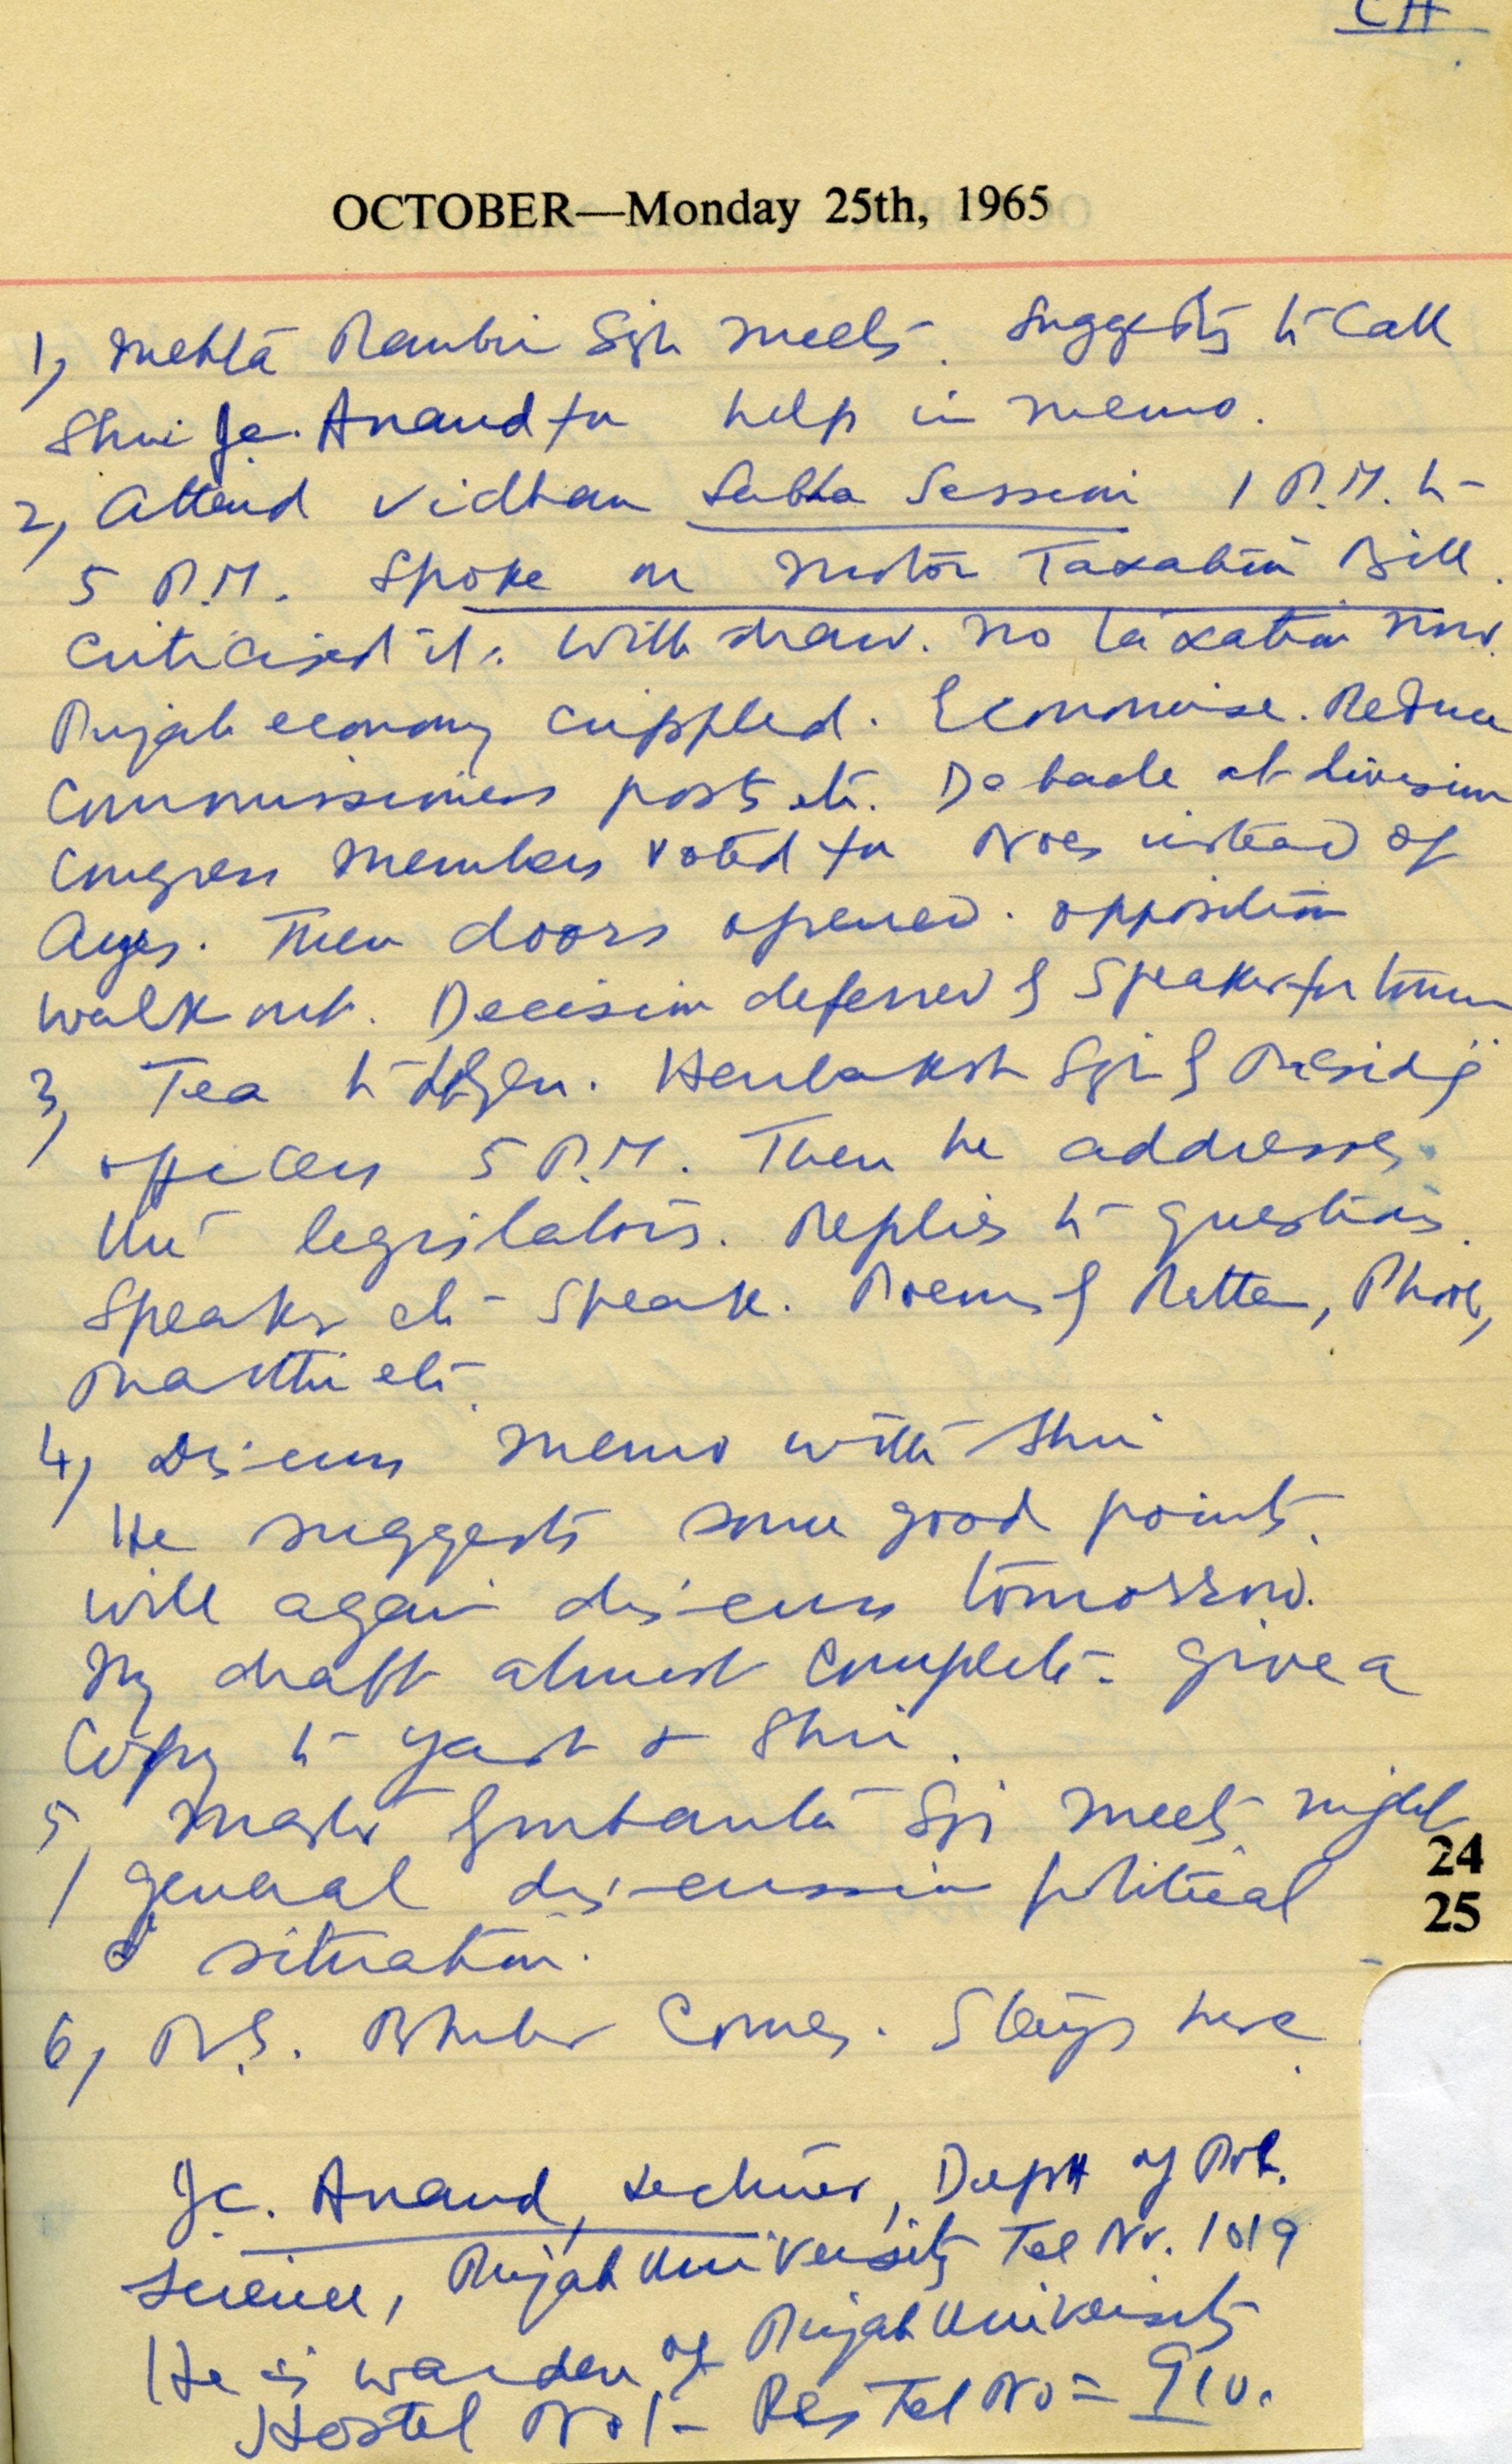 CH
OCTOBER—Monday 25th, 1965
1, Mehta Ranbir Sgh meets. Suggests to call
Shri J.C. Anand for help in memo.
2, Attend Vidhan Sabha Session 1 P.M. to
5 P.M. Spoke on Motor Taxation Bill.
Criticised it. Withdraw. No taxation now.
Punjab economy crippled. Economise. Reduce
Commissioners posts etc. Debacle at division
Congress members voted for Noes instead of
Ayes. Then doors opened. Opposition
walk out. Decision deferred by Speaker for
3, Tea to Lt Gen. Harbaksh Sgh by Presiding
officers 5 P.M. Then he addresses
the legislators. Replies to questions.
Speaker etc speak. Poems by Rattan, Phool,
etc
4, Discuss memo with Shri
He suggests some good points.
will again discuss tomorrow.
My draft almost complete. Give a
copy to Yash & Shri.
5, Master Gurbanta Sgh meets night
general discussion political
& situation.
6, P.S. comes. Stays here.
J.C. Anand, Lecturer, Deptt of Pol.
Science, Punjab University Tel No. 1019
He is warden of Punjab University
Hostel No 1 – Res Tel No = 910.
24
25